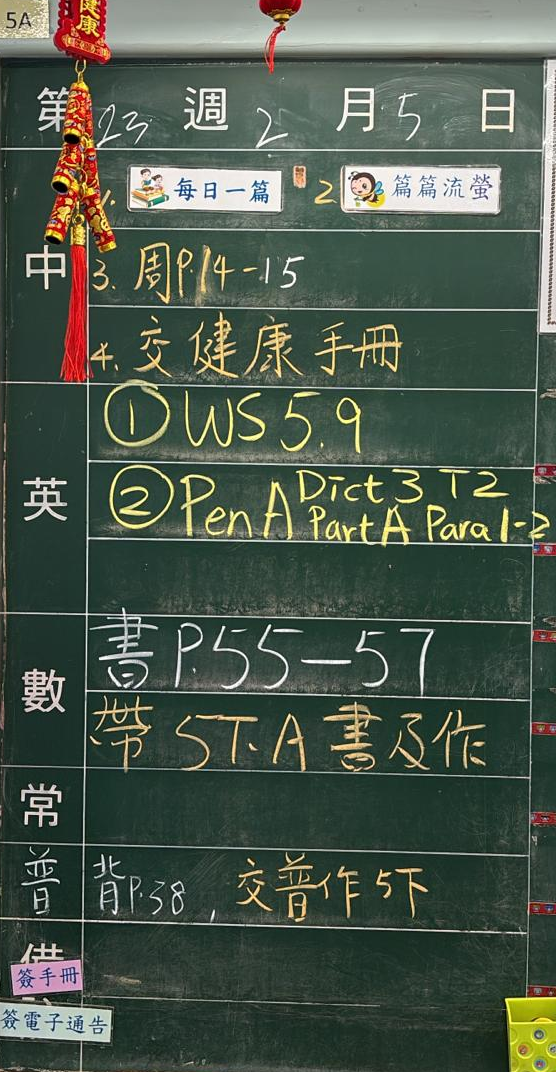 5A
健康
第 23 週 2 月 5 日
中
1. 每日一篇 2 篇篇流螢
3. 周P.14-15
4. 交健康手冊
英
① WS 5.9
② Pen A Dict 3 T2
Part A Para 1-2
數
書 P.55—57
帶 5T.A 書及作
常
普
背P.38, 交普作 5下
備
簽手冊
簽電子通告